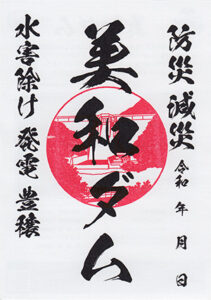 防災 減災
令和 年 月 日
美和ダム
水害除け 発電 豊穣